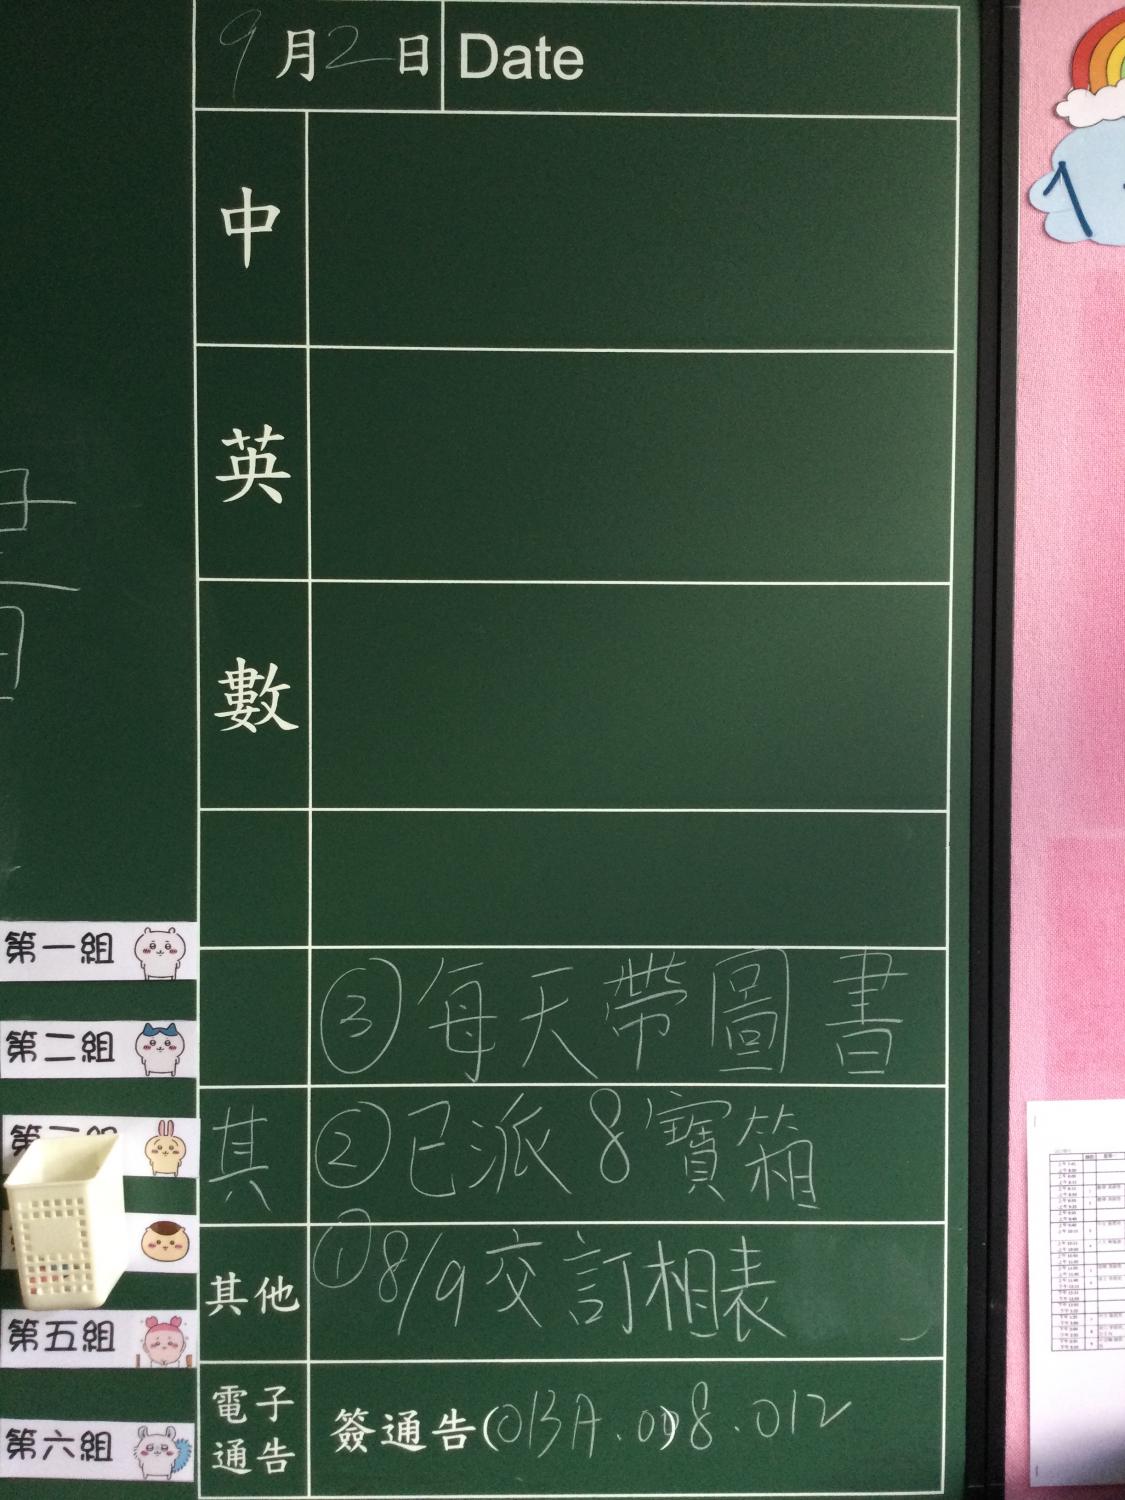 9月2日 Date
中
英
數
③每天帶圖書
其 ②已派8寶箱
其他 ①8/9交訂相表
電子通告 簽通告(013A.008.012
第一組
第二組
第五組
第六組